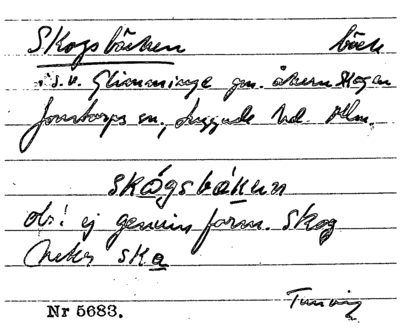 Skogsbäcken bäck
s.v. Glimminge gm. åkern Skogen
Jonstorps sn, Luggude hd. Mlm.
skógsbákun
obs! ej genuin form. Skog
heter ska
Nr 5683.